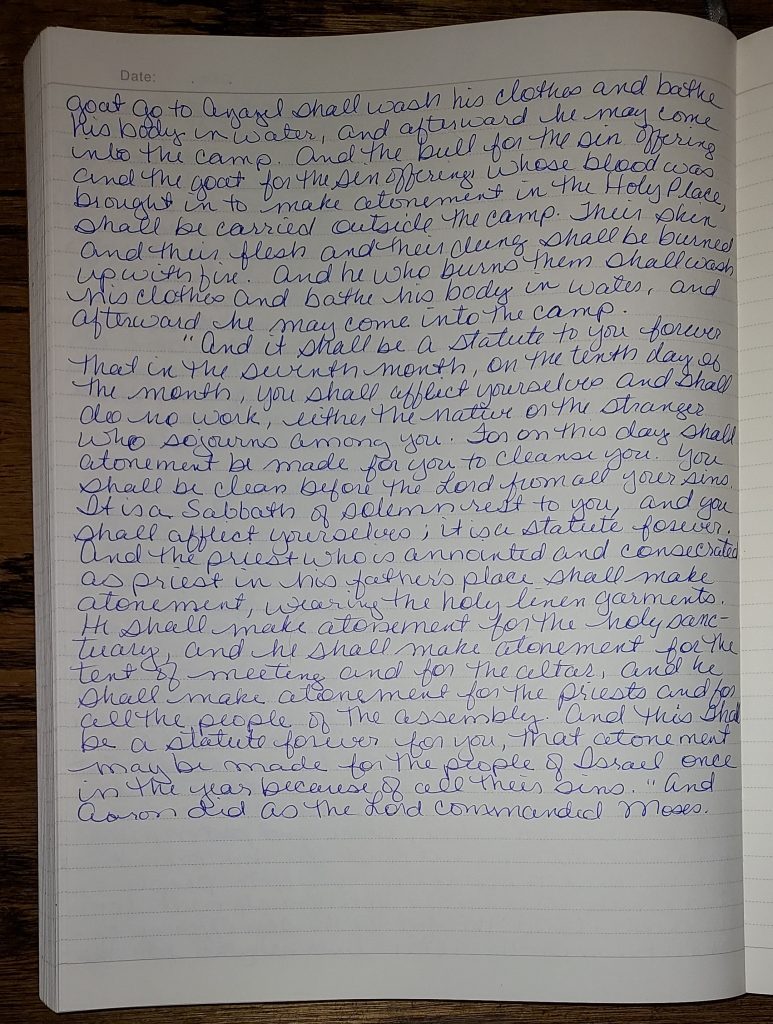 Date:
goat go to Azazel shall wash his clothes and bathe
his body in water, and afterward he may come
into the camp. And the bull for the sin offering
and the goat for the sin offering, whose blood was
brought in to make atonement in the Holy Place,
shall be carried outside the camp. Their skin
and their flesh and their dung shall be burned
up with fire. And he who burns them shall wash
his clothes and bathe his body in water, and
afterward he may come into the camp.
"And it shall be a statute to you forever
that in the seventh month, on the tenth day of
the month, you shall afflict yourselves and shall
do no work, either the native or the stranger
who sojourns among you. For on this day shall
atonement be made for you to cleanse you. You
shall be clean before the Lord from all your sins.
It is a Sabbath of solemn rest to you, and you
shall afflict yourselves; it is a statute forever.
And the priest who is annointed and consecrated
as priest in his father's place shall make
atonement, wearing the holy linen garments.
He shall make atonement for the holy sanc-
tuary, and he shall make atonement for the
tent of meeting and for the altar, and he
shall make atonement for the priests and for
all the people of the assembly. And this shall
be a statute forever for you, that atonement
may be made for the people of Israel once
in the year because of all their sins." And
Aaron did as the Lord commanded Moses.